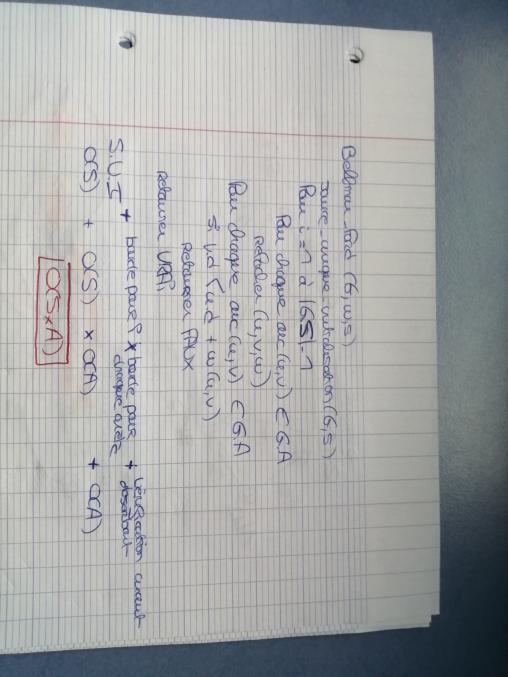 Bellman_Ford (G, w, s)
source_unique_initialisation (G, s)
Pour i = 1 à |G.S| - 1
Pour chaque arc (u, v) ∈ G.A
Relacher (u, v, w)
Pour chaque arc (u, v) ∈ G.A
Si v.d > u.d + w(u, v)
Retourner FAUX
Retourner VRAI
S.U.I + boucle pour i × boucle pour chaque arête + vérification circuit absorbant
O(S) + O(S) × O(A) + O(A)
O(S×A)